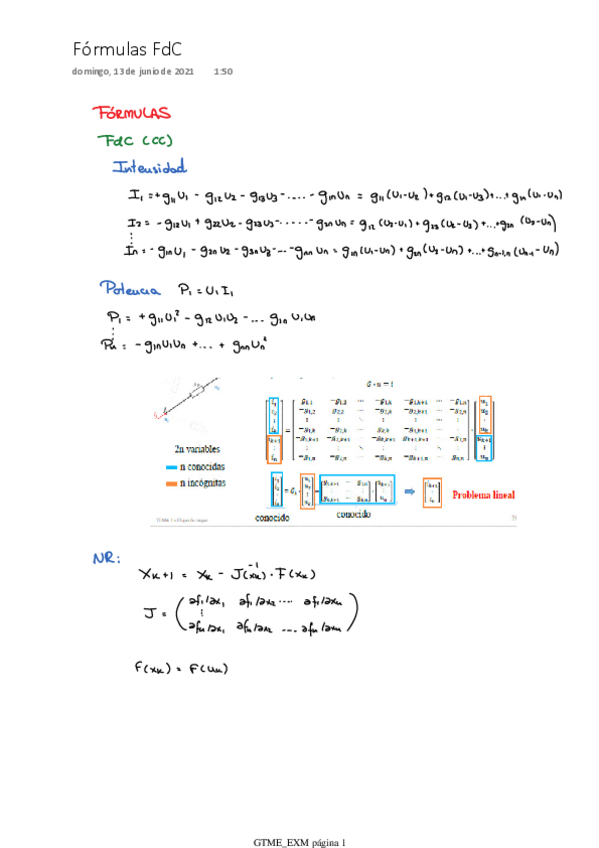 Fórmulas FdC
domingo, 13 de junio de 2021 1:50
FÓRMULAS
FdC (CC)
Intensidad
I₁ = +g₁₁U₁ - g₁₂U₂ - g₁₃U₃ - .... - g₁ₙUₙ = g₁₁(U₁-U₂) + g₁₂(U₁-U₃) + ... + g₁ₙ(U₁-Uₙ)
I₂ = -g₁₂U₁ + g₂₂U₂ - g₂₃U₃ - ..... - g₂ₙUₙ = g₁₂(U₂-U₁) + g₂₃(U₂-U₃) + ... + g₂ₙ(U₂-Uₙ)
⋮
Iₙ = -g₁ₙU₁ - g₂ₙU₂ - g₃ₙU₃ - ... - gₙₙUₙ = g₁ₙ(U₁-Uₙ) + g₂ₙ(U₂-Uₙ) + ... + gₙ₋₁,ₙ(Uₙ₋₁-Uₙ)
Potencia P₁ = U₁I₁
P₁ = +g₁₁U₁² - g₁₂U₁U₂ - ... g₁ₙU₁Uₙ
⋮
Pₙ = -g₁ₙU₁Uₙ + ... + gₙₙUₙ²
G · u = i
2n variables
n conocidas
n incógnitas
Problema lineal
conocido conocido
NR:
Xₖ₊₁ = Xₖ - J(xₖ)⁻¹ · F(xₖ)
J = (∂f₁/∂x₁ ∂f₁/∂x₂ .... ∂f₁/∂xₙ
⋮
∂fₙ/∂x₁ ∂fₙ/∂x₂ .... ∂fₙ/∂xₙ)
F(xₖ) = F(Uₖ)
GTME_EXM página 1